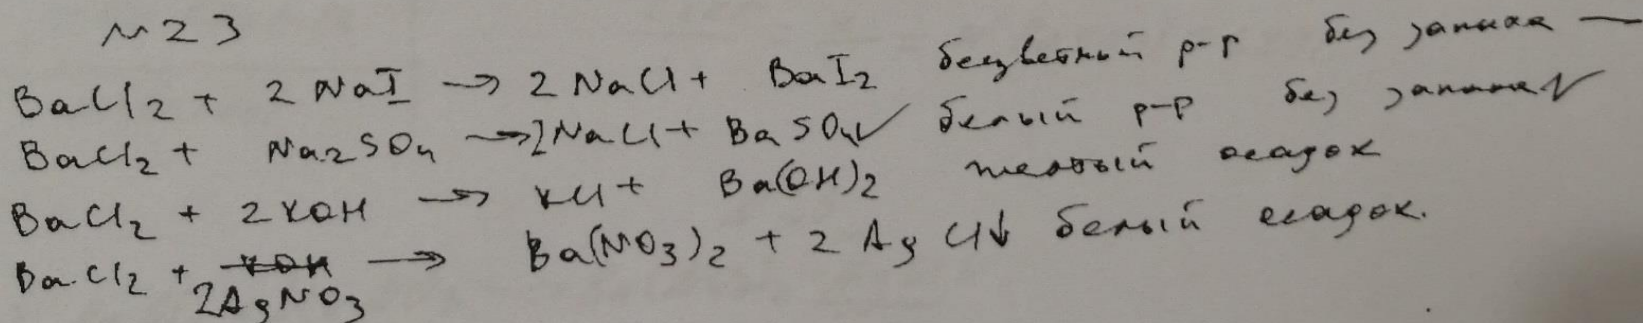 N23
BaCl2 + 2 NaI → 2 NaCl + BaI2 бесцветный р-р без запаха —
BaCl2 + Na2SO4 → 2NaCl + BaSO4↓ белый р-р без запаха ✓
BaCl2 + 2 KOH → KCl + Ba(OH)2 желтый осадок
BaCl2 + ~~KOH~~ 2AgNO3 → Ba(NO3)2 + 2 AgCl↓ белый осадок.